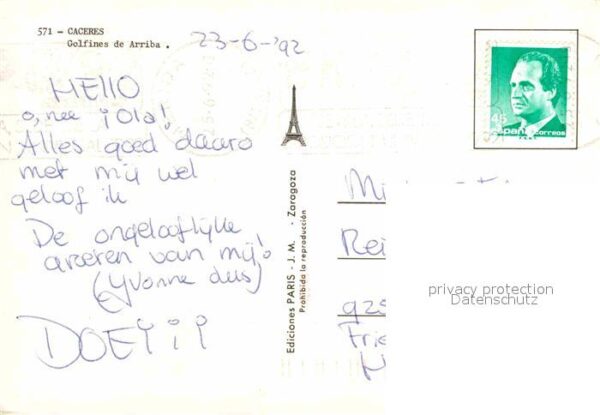 571 - CACERES
Golfines de Arriba.
23-6-'92
HEllO
o, nee ¡Ola!
Alles goed daaro
met mij wel
geloof ik
De ongelooflijke
groeten van mij!
(Yvonne dus)
DOEiii
Ediciones PARIS - J. M. - Zaragoza
Prohibida la reproducción
45
españa correos
Rei
925
Frie
privacy protection
Datenschutz